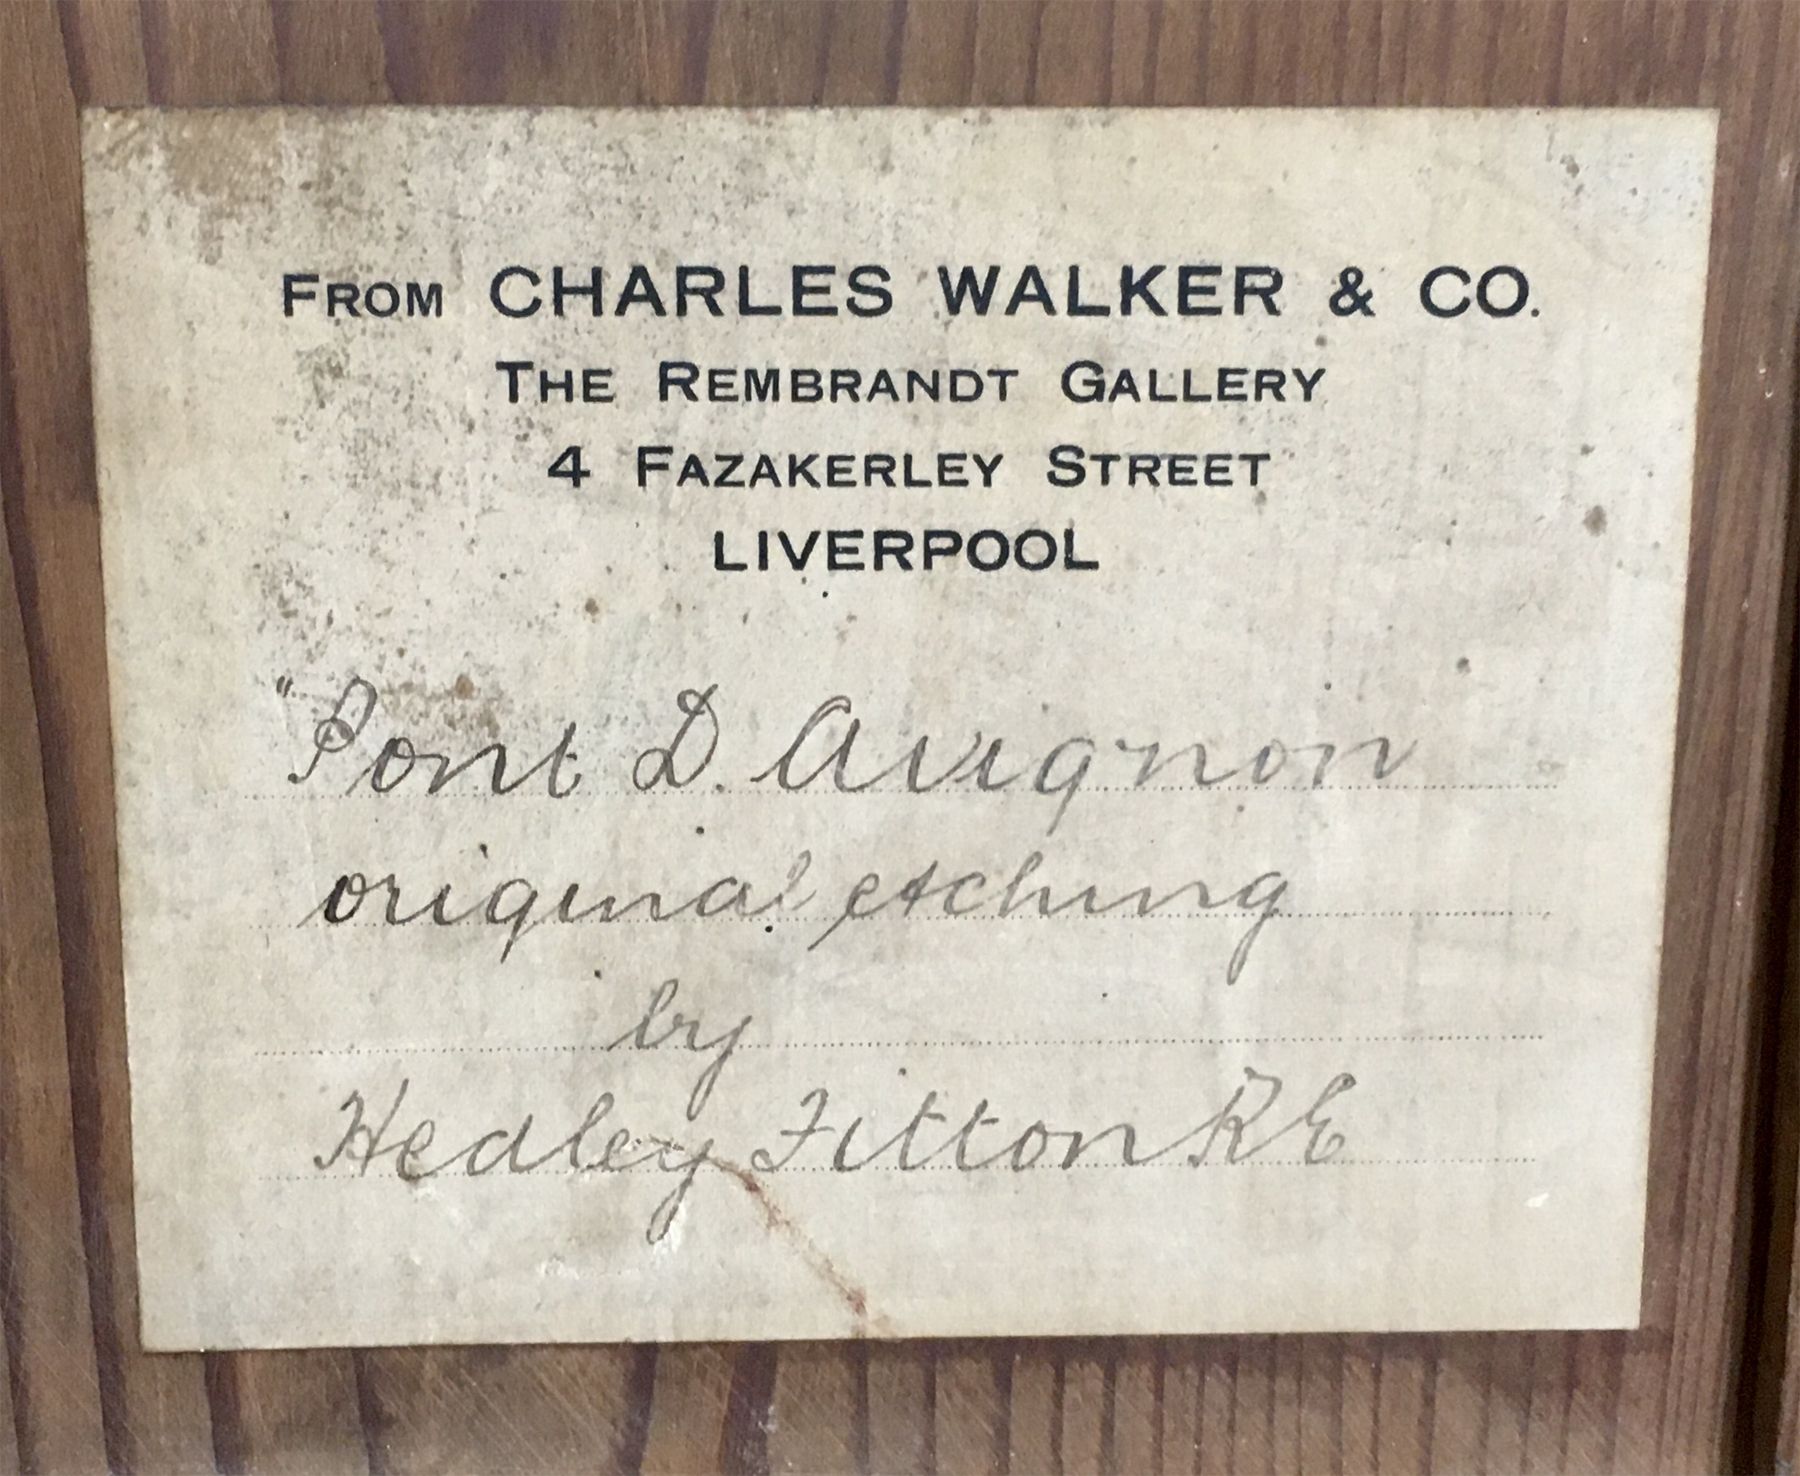 From CHARLES WALKER & CO.
The Rembrandt Gallery
4 Fazakerley Street
LIVERPOOL
"Pont D. Avignon
original etching
by
Hedley Fitton RE